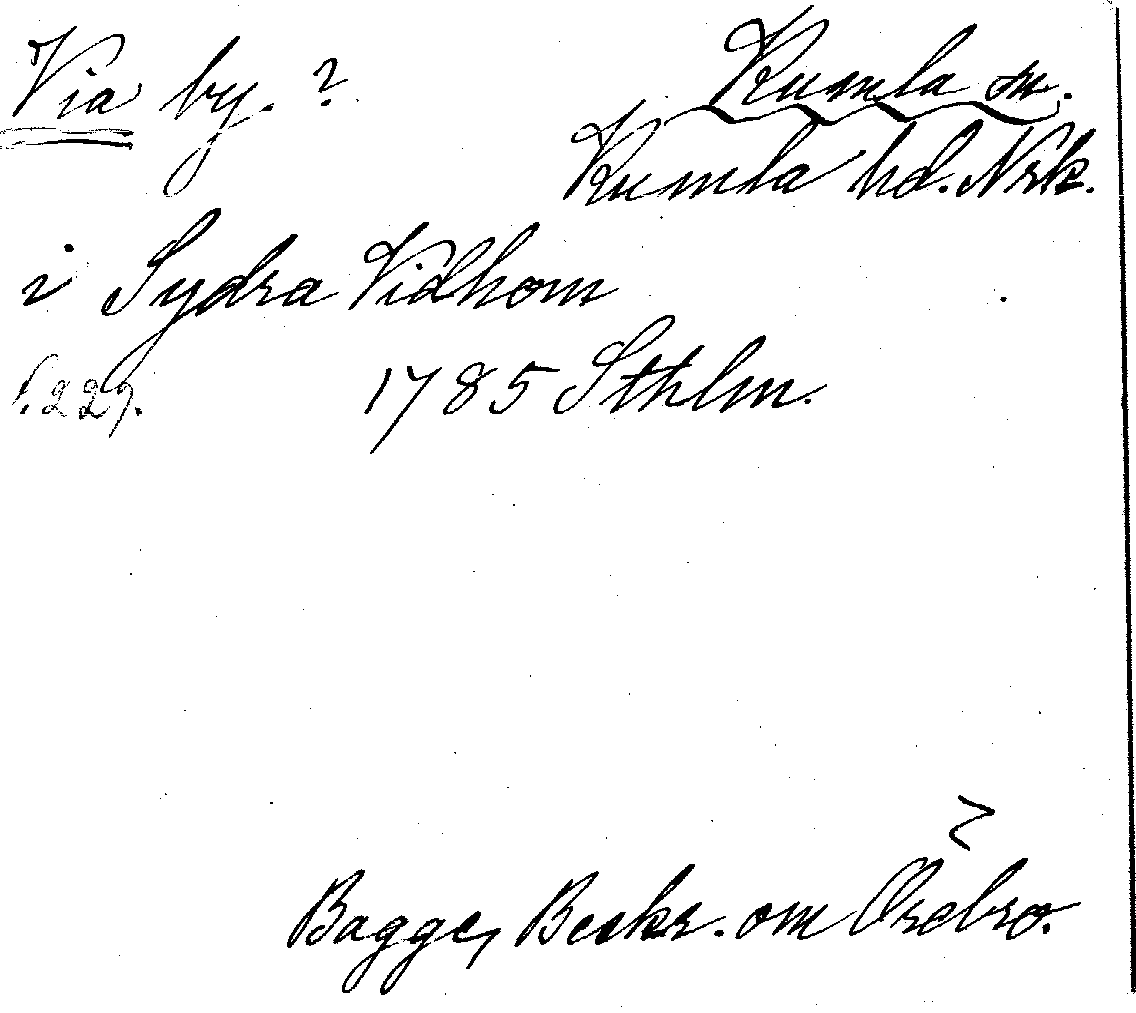 Via by. ?
Kumla sn.
Kumla hd. Nrk.
i Sydra Vidhom
s. 229.
1785 Sthlm.
Bagge, Beskr. om Örebro.